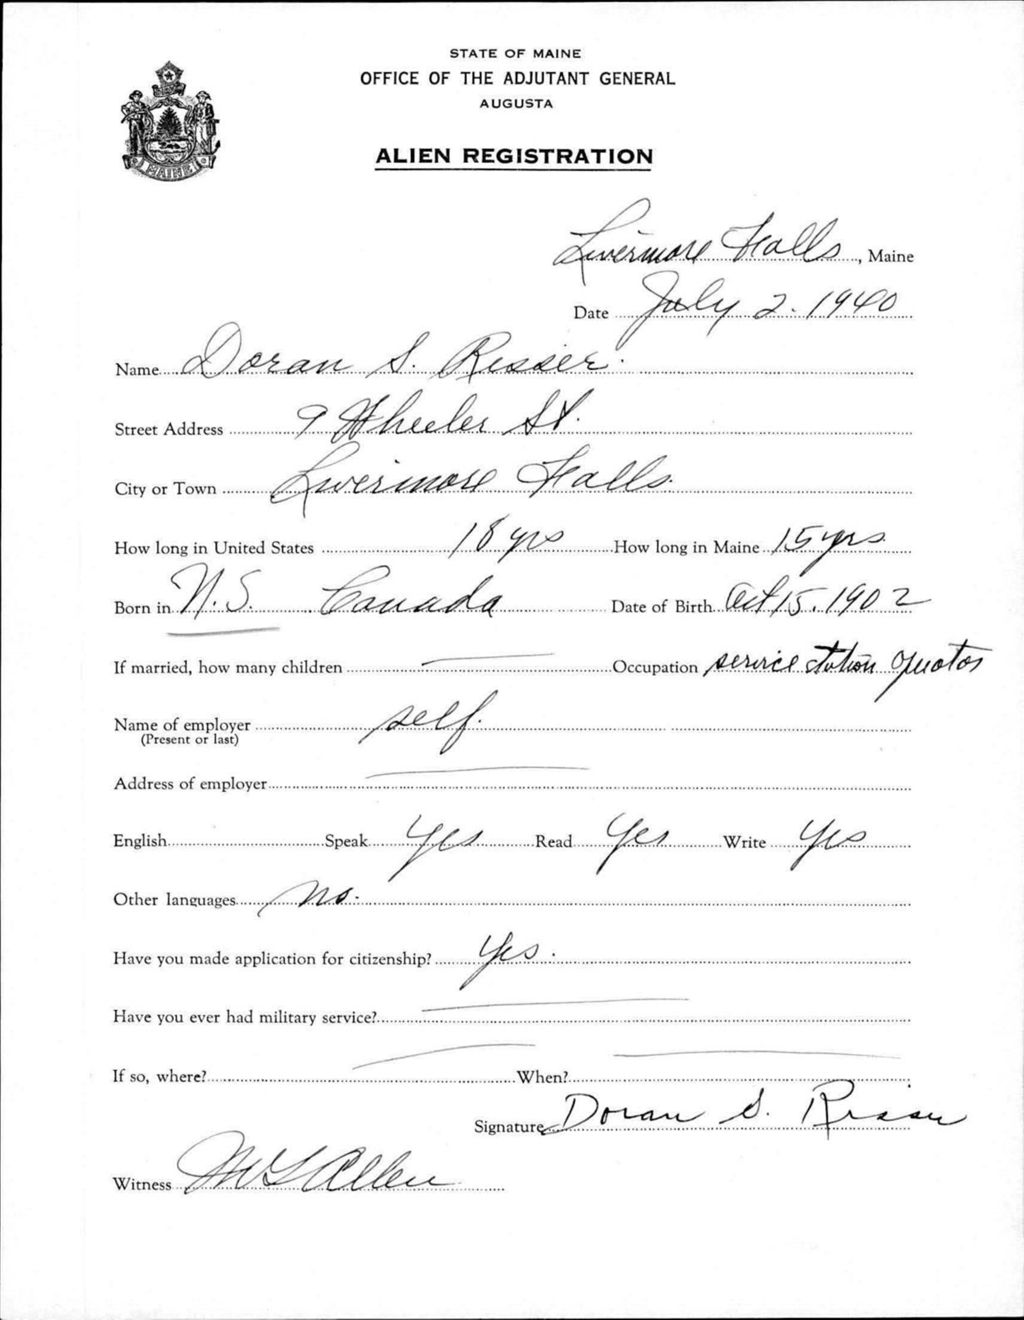 STATE OF MAINE
OFFICE OF THE ADJUTANT GENERAL
AUGUSTA
ALIEN REGISTRATION
MAINE
Livermore Falls, Maine
Date July 2. 1940
Name Doran S. Risser.
Street Address 9 Wheeler St.
City or Town Livermore Falls.
How long in United States 18 yrs How long in Maine 15 yrs
Born in N.S. Canada Date of Birth Oct 15. 1902
If married, how many children — Occupation service station
Name of employer self.
(Present or last)
Address of employer —
English Speak Yes Read Yes Write Yes
Other languages no.
Have you made application for citizenship? Yes.
Have you ever had military service? —
If so, where? — When? —
Signature Doran S. Risser
Witness Allen